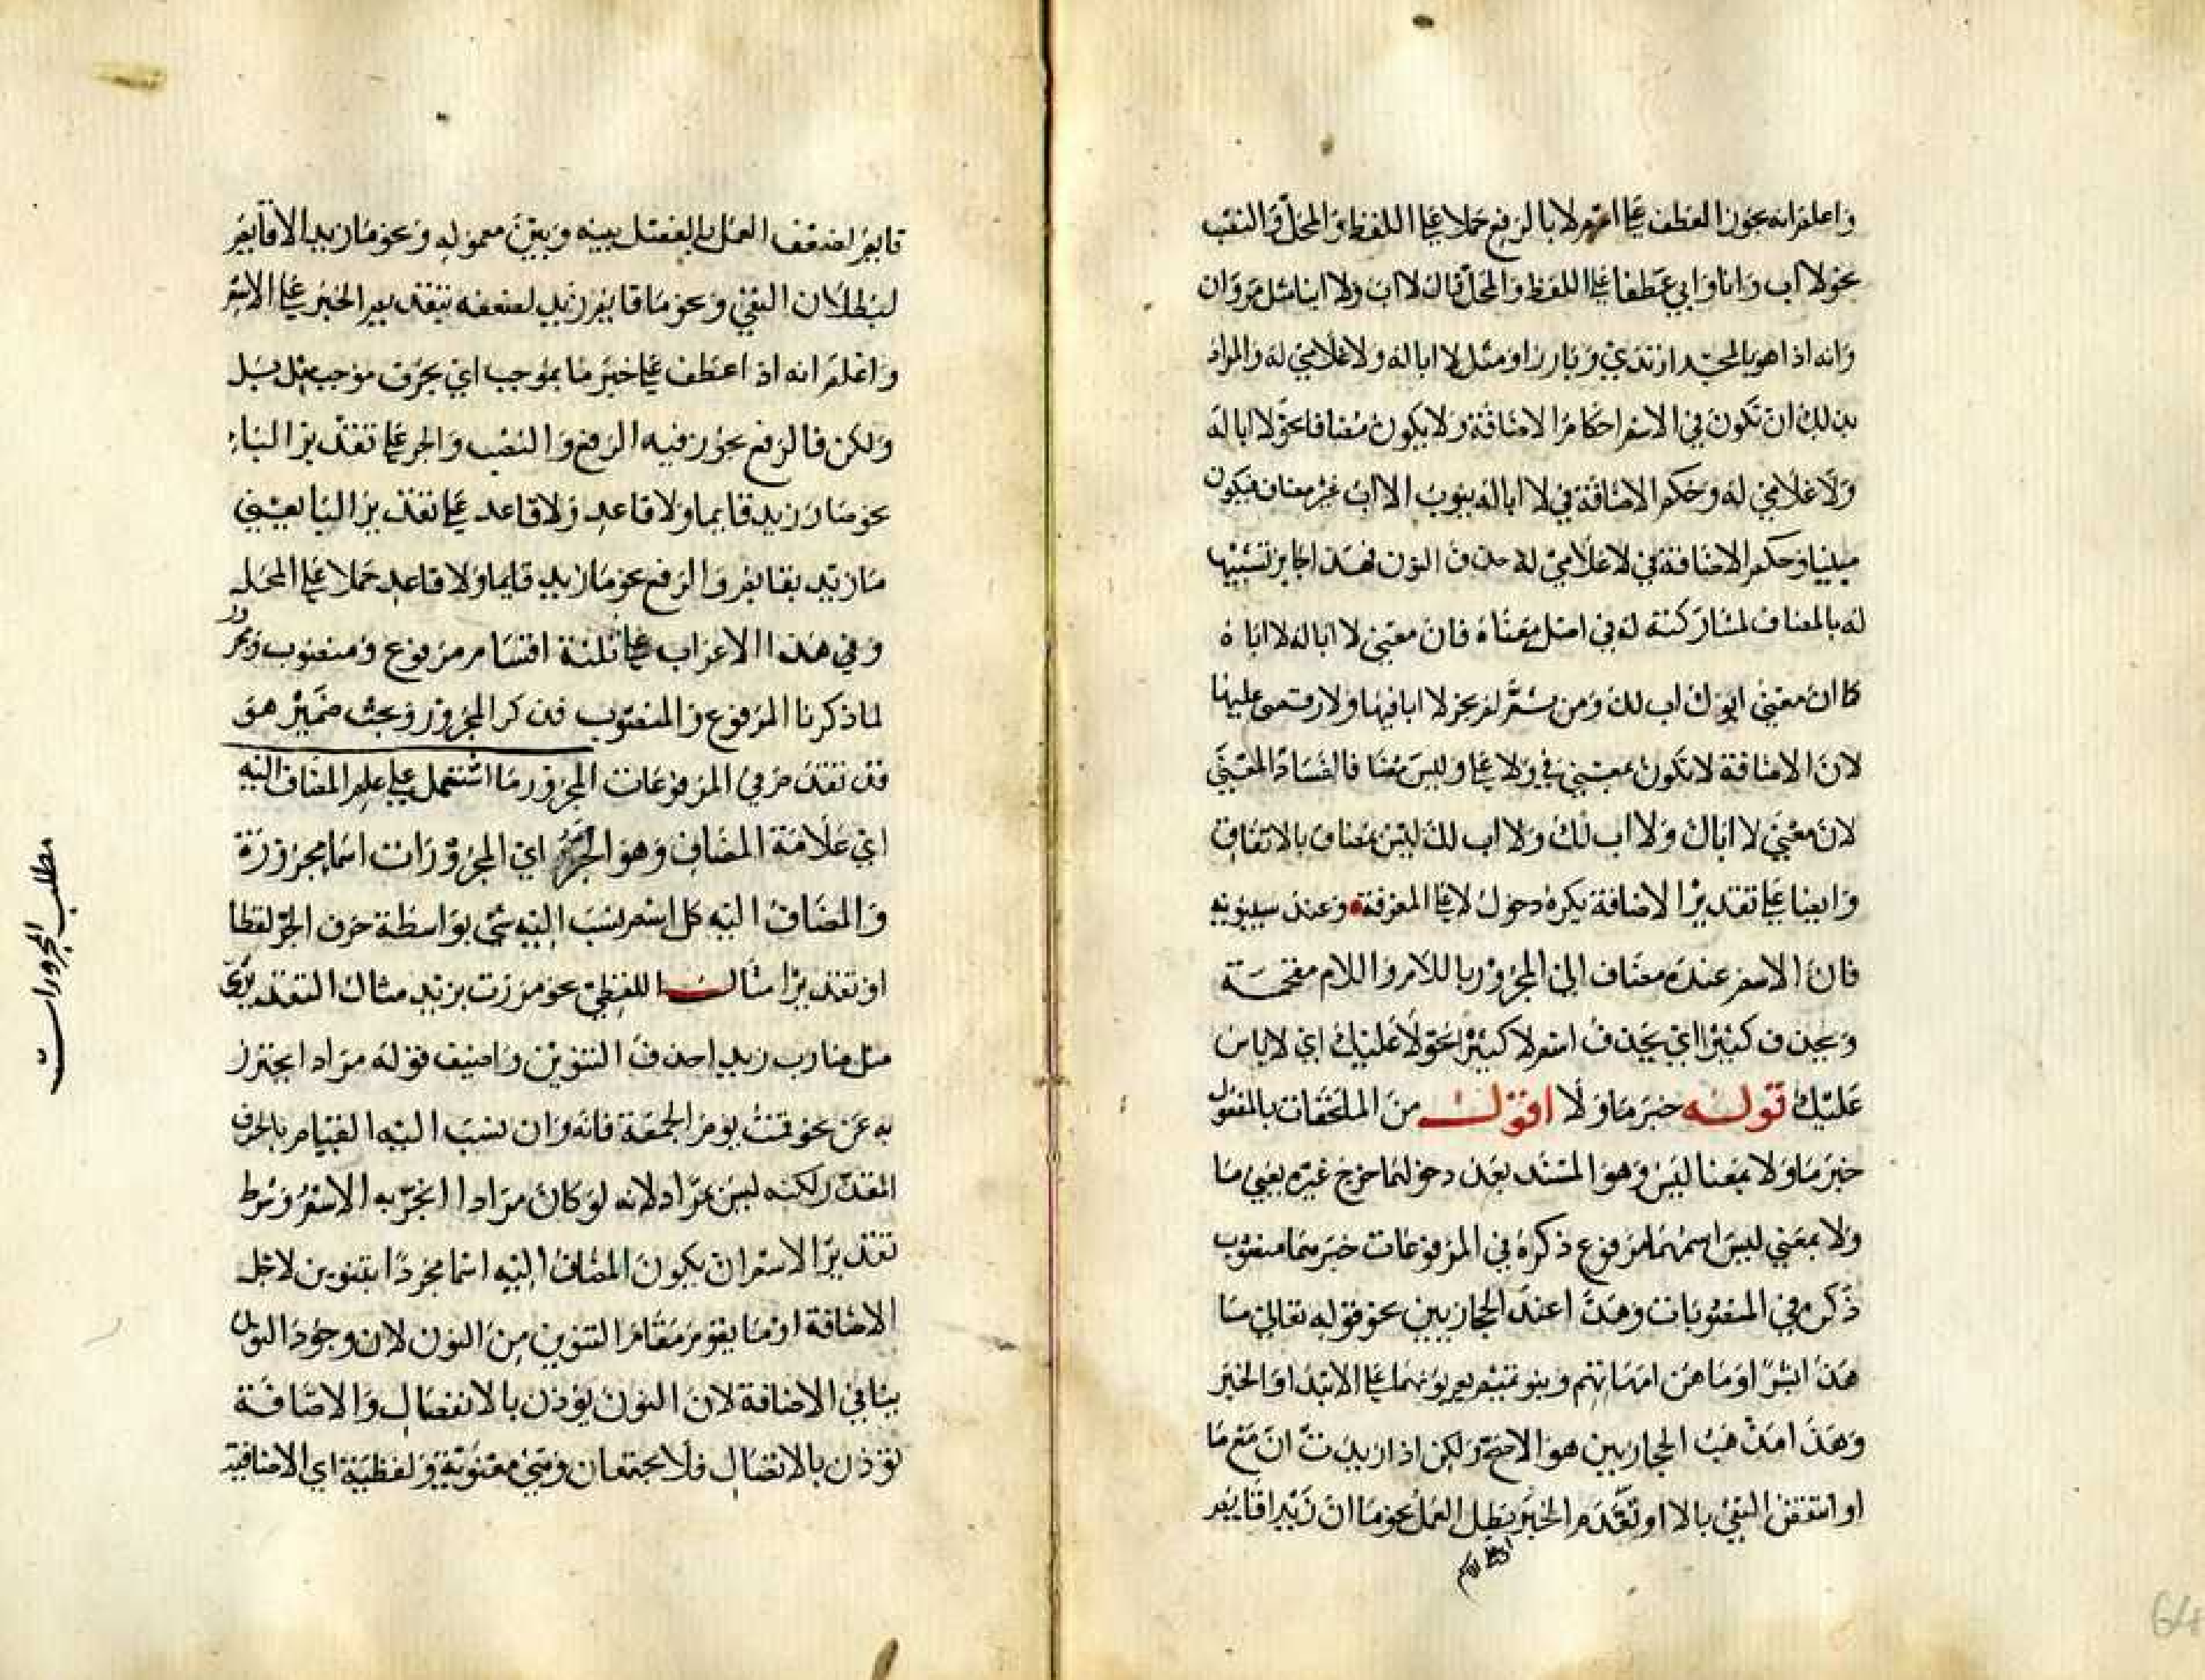 واعلم انه يجوز العطف على اسم لا بالرفع حملا على اللفظ والمحل والنصب
نحو لا اب وانا وابي عطفا على اللفظ والمحل قال لا اب ولا ابنا مثل مروان
وانه اذا هو بالمجد ارتدي وتازرا ومثل لا ابا له ولا غلامي له والمراد
بذلك ان تكون في الاسم احكام الاضافة ولا يكون مضافا نحو لا ابا له
ولا غلامي له وحكم الاضافة في لا ابا له ثبوت الاب غير مضاف فيكون
مبنيا وحكم الاضافة في لا غلامي له حذف النون فهذا جايز تشبيها
له بالمضاف لمشاركته له في اصل معناه فان معنى لا ابا له لا اباه
كما ان معنى ابوك اب لك ومن ثم لم يجز لا ابا فيها ولا رقيبي عليها
لان الاضافة لا تكون بمعنى في ولا على وليس مضافا لفساد المعنى
لان معنى لا اباك ولا اب لك ولا اب لك ليس بمضاف بالاتفاق
وايضا على تقدير الاضافة يكره دخول لا على المعرفة وعند سيبويه
فان الاسم عنده مضاف الى المجرور باللام واللام مقحمة
ويحذف كثيرا اي يحذف اسم لا كثيرا نحو لا عليك اي لا باس
عليك قوله خبر ما ولا اقول من الملحقات بالمفعول
خبر ما ولا بمعنا ليس وهو المسند بعد دخولهما خرج غيره يعني ما
ولا بمعني ليس اسمهما مرفوع ذكره في المرفوعات خبرهما منصوب
ذكره في المنصوبات وهذا عند الحجازيين نحو قوله تعالى ما
هذا بشرا وما هن امهاتهم وبنو تميم يرفعونهما على الابتدا والخبر
وهذا مذهب الحجازيين هو الاصح ولكن اذا زيدت ان مع ما
او انتقض النفي بالا او تقدم الخبر بطل العمل نحو ما ان زيدا قايم
قايم لضعف العمل بالفصل بينه وبين معموله ونحو ما زيد الا قايم
لبطلان النفي ونحو ما قايم زيد لضعفه بتقديم الخبر على الاسم
واعلم انه اذا عطف على خبر ما بموجب اي بحرف موجب مثل بل
ولكن فالرفع يجوز فيه الرفع والنصب والجر على تقدير الباء
نحو ما زيد قايما ولا قاعد ولا قاعد على تقدير البا يعني
ما زيد بقايم والرفع نحو ما زيد قايما ولا قاعد حملا على المحل
وفي هذا الاعراب على ثلثة اقسام مرفوع ومنصوب ومجرور
لما ذكرنا المرفوع والمنصوب فذكر المجرور وبحث ضمير هو
قد تقدم في المرفوعات المجرور ما اشتمل على علم المضاف اليه
اي علامة المضاف وهو الجر اي المجرورات اسما مجرورة
والمضاف اليه كل اسم نسب اليه شي بواسطة حرف الجر لفظا
او تقديرا مثال اللفظي نحو مررت بزيد مثال التقديري
مثل ضارب زيد احذف التنوين واضيف قوله مرادا يحترز
به عن نحو قمت يوم الجمعة فانه وان نسب اليه القيام بالحرف
المقدر لكنه ليس بمراد لانه لو كان مرادا انجر به الاسم وشرط
تقدير الاسم ان يكون المضاف اليه اسما مجردا بتنوين لاجل
الاضافة او ما يقوم مقام التنوين من النون لان وجود النون
ينافي الاضافة لان النون يوذن بالانفصال والاضافة
توذن بالاتصال فلا يجتمعان وهي معنوية ولفظية اي الاضافة
مطلب المجرورات